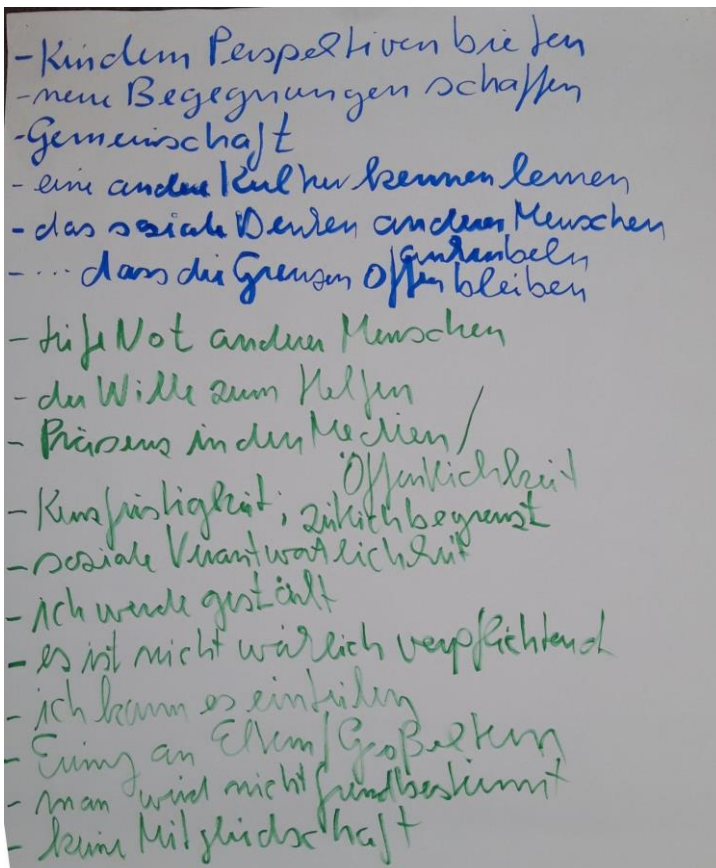 - Kindern Perspektiven bieten
- neue Begegnungen schaffen
- Gemeinschaft
- eine andere Kultur kennen lernen
- das soziale Denken anderer Menschen
ankurbeln
- ... dass die Grenzen offen bleiben
- tiefe Not anderer Menschen
- der Wille zum Helfen
- Präsens in den Medien/
Öffentlichkeit
- Kurzfristigkeit, zeitlich begrenzt
- soziale Verantwortlichkeit
- ich werde gestärkt
- es ist nicht wirklich verpflichtend
- ich kann es einteilen
- an Eltern/Großeltern
- man wird nicht fremdbestimmt
- keine Mitgliedschaft